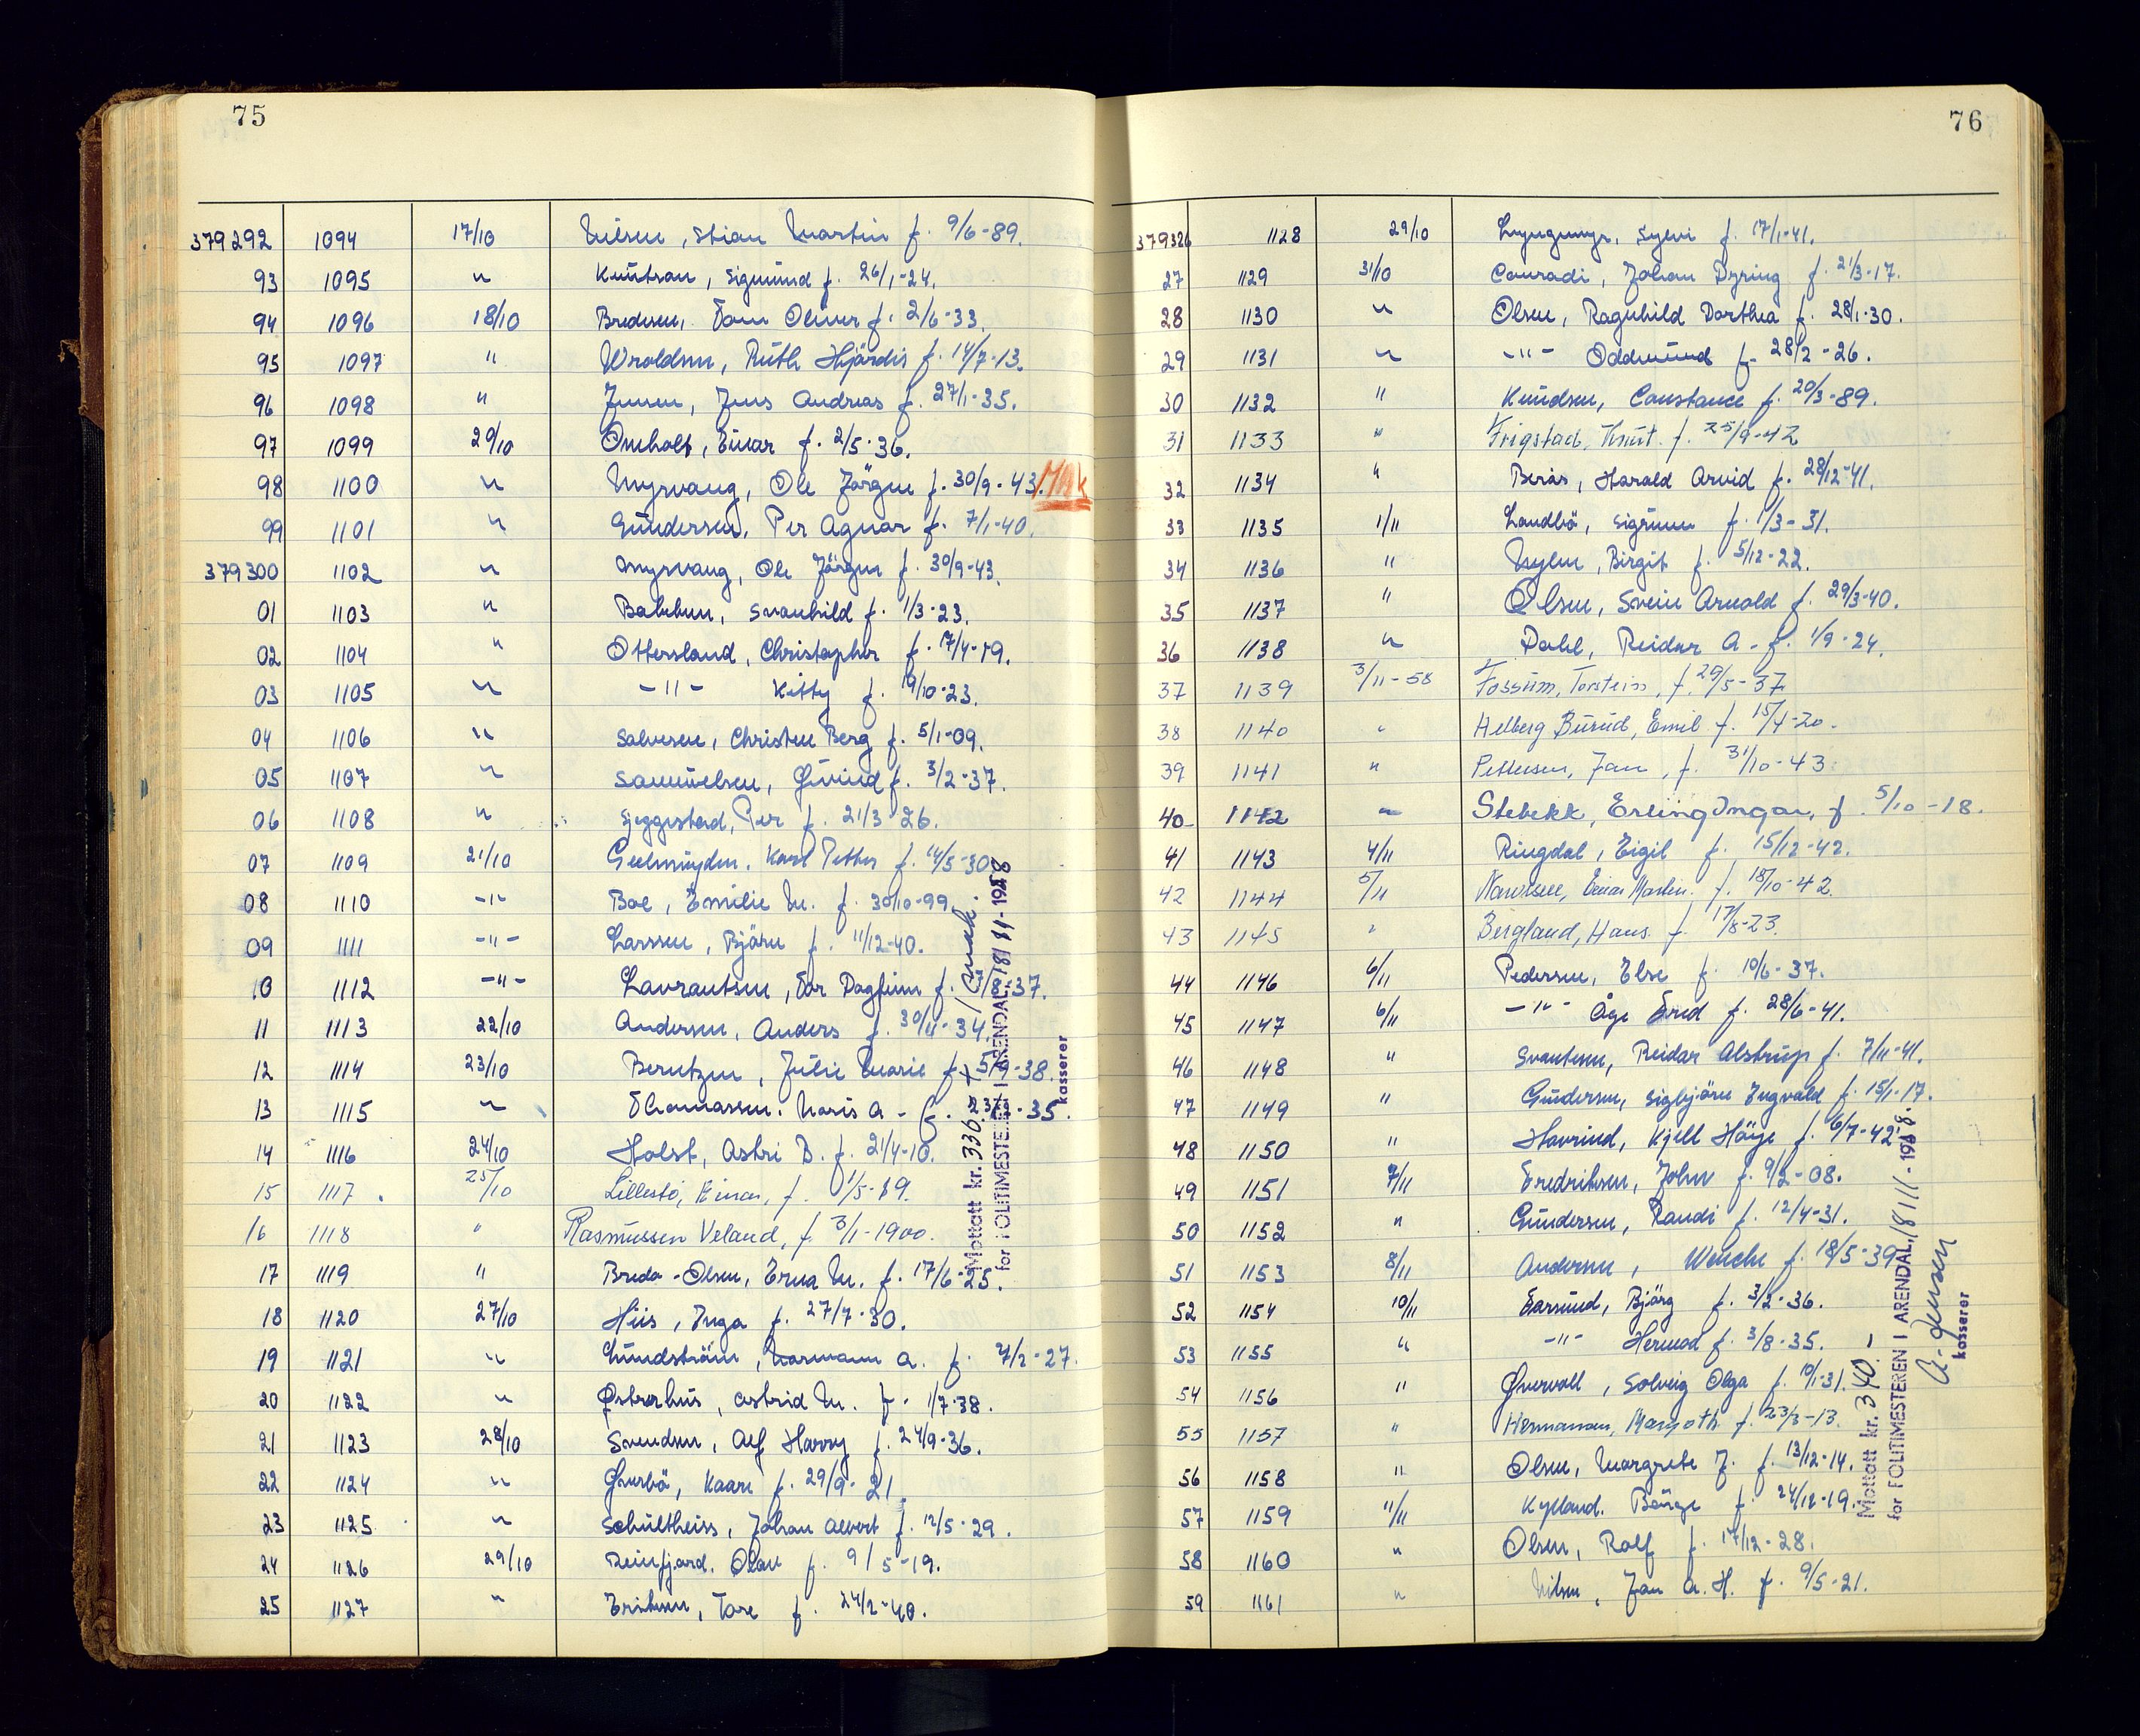 75
379292 1094 17/10 Nilsen, Stian Martin f. 9/6-89.
93 1095 " Knutson, Sigmund f. 26/1-24.
94 1096 18/10 Bredesen, Tom Oliver f. 2/6-33.
95 1097 " Wroldsen, Ruth Hjördis f. 14/7-13.
96 1098 " Jensen, Jens Andreas f. 27/1-35.
97 1099 20/10 Omholt, Einar f. 2/5-36.
98 1100 " Myrvang, Ole Jörgen f. 30/9-43. Mak
99 1101 " Gundersen, Per Agnar f. 7/1-40.
379300 1102 " Myrvang, Ole Jörgen f. 30/9-43.
01 1103 " Bakken, Svanhild f. 1/3-23.
02 1104 " Ottersland, Christopher f. 17/4-19.
03 1105 " -"- Kitty f. 19/10-23.
04 1106 " Salvesen, Christen Berg f. 5/1-09.
05 1107 " Samuelsen, Øivind f. 3/2-37.
06 1108 " Seggestad, Per f. 21/3-26.
07 1109 21/10 Geelmuyden, Karl Petter f. 14/5-30
08 1110 -"- Boe, Emilie M. f. 30/10-99.
09 1111 -"- Larssen, Björn f. 11/12-40.
10 1112 -"- Lavrantsen, Tor Dagfinn f. /8-37.
11 1113 22/10 Andersen, Anders f. 30/11-34.
12 1114 23/10 Berntzen, Julie Marie f. 5/9-38.
13 1115 " Thomassen, Noris A. f. -35.
14 1116 24/10 Holst, Astri B. f. 21/4-10.
15 1117 25/10 Lillestö, Einar, f. 1/5-19.
16 1118 " Rasmussen Veland, f. 3/1-1900.
17 1119 " Breda-Olsen, Erna M. f. 17/6-25.
18 1120 27/10 Hiis, Inga f. 27/7-30.
19 1121 " Lundström, Normann A. f. 7/2-27.
20 1122 " Østerhus, Astrid M. f. 1/7-38.
21 1123 28/10 Svendsen, Alf Harry f. 24/9-36.
22 1124 " Øverbö, Kaare f. 29/9-21.
23 1125 " Schultheiss, Johan Albert f. 12/5-29.
24 1126 29/10 Reinfjord, Olav f. 9/5-19.
25 1127 " Eriksen, Tore f. 24/2-40.
Mottatt kr. 336.-
for POLITIMESTEREN I ARENDAL, 18/11-1958
kasserer
76
379326 1128 29/10 Lyngmyr, Sylvi f. 17/1-41.
27 1129 31/10 Conradi, Johan Dyring f. 21/3-17.
28 1130 " Olsen, Ragnhild Dorthea f. 28/1-30.
29 1131 " -"- Oddmund f. 28/2-26.
30 1132 " Knudsen, Constance f. 20/3-89.
31 1133 " Frigstad, Knut. f. 25/9-42
32 1134 " Berås, Harald Arvid f. 28/12-41.
33 1135 1/11 Landbö, Sigrunn f. 1/3-31.
34 1136 " Nylen, Birgit f. 5/12-22.
35 1137 " Olsen, Svein Arnold f. 29/3-40.
36 1138 " Dahl, Reidar A. f. 1/9-24.
37 1139 3/11-58 Fossum, Torstein, f. 29/5-37
38 1140 " Helberg Burud, Emil f. 15/4-20.
39 1141 " Pettersen, Jan, f. 31/10-43
40 1142 " Stebekk, Erling Ingar, f. 5/10-18.
41 1143 4/11 Ringdal, Eigil f. 15/12-42.
42 1144 5/11 Martin. f. 18/10-42.
43 1145 " Bergland, Hans f. 17/8-23.
44 1146 6/11 Pedersen, Else f. 10/6-37.
45 1147 6/11 -"- Åge Fred f. 28/6-41.
46 1148 " Svantesen, Reidar Alstrup f. 7/11-41.
47 1149 " Gundersen, Sigbjörn Ingvald f. 15/1-17.
48 1150 " Havrind, Kjell Höye f. 6/7-42.
49 1151 7/11 Fredriksen, John f. 9/2-08.
50 1152 " Gundersen, Randi f. 12/4-31.
51 1153 8/11 Andersen, Wenche f. 18/5-39
52 1154 10/11 Farsund, Bjärg f. 3/2-36.
53 1155 " -"- Hermod f. 3/8-35.
54 1156 " Øvervoll, Solveig Olga f. 10/1-31.
55 1157 " Hermansen, Margoth f. 23/3-13.
56 1158 " Olsen, Margrete J. f. 13/12-14.
57 1159 11/11 Kylland, Börge f. 24/12-19.
58 1160 " Olsen, Rolf f. 17/12-28.
59 1161 " Nilsen, Jan A. H. f. 9/5-21.
Mottatt kr. 340.-
for POLITIMESTEREN I ARENDAL, 18/11-1958.
A. Jensen
kasserer